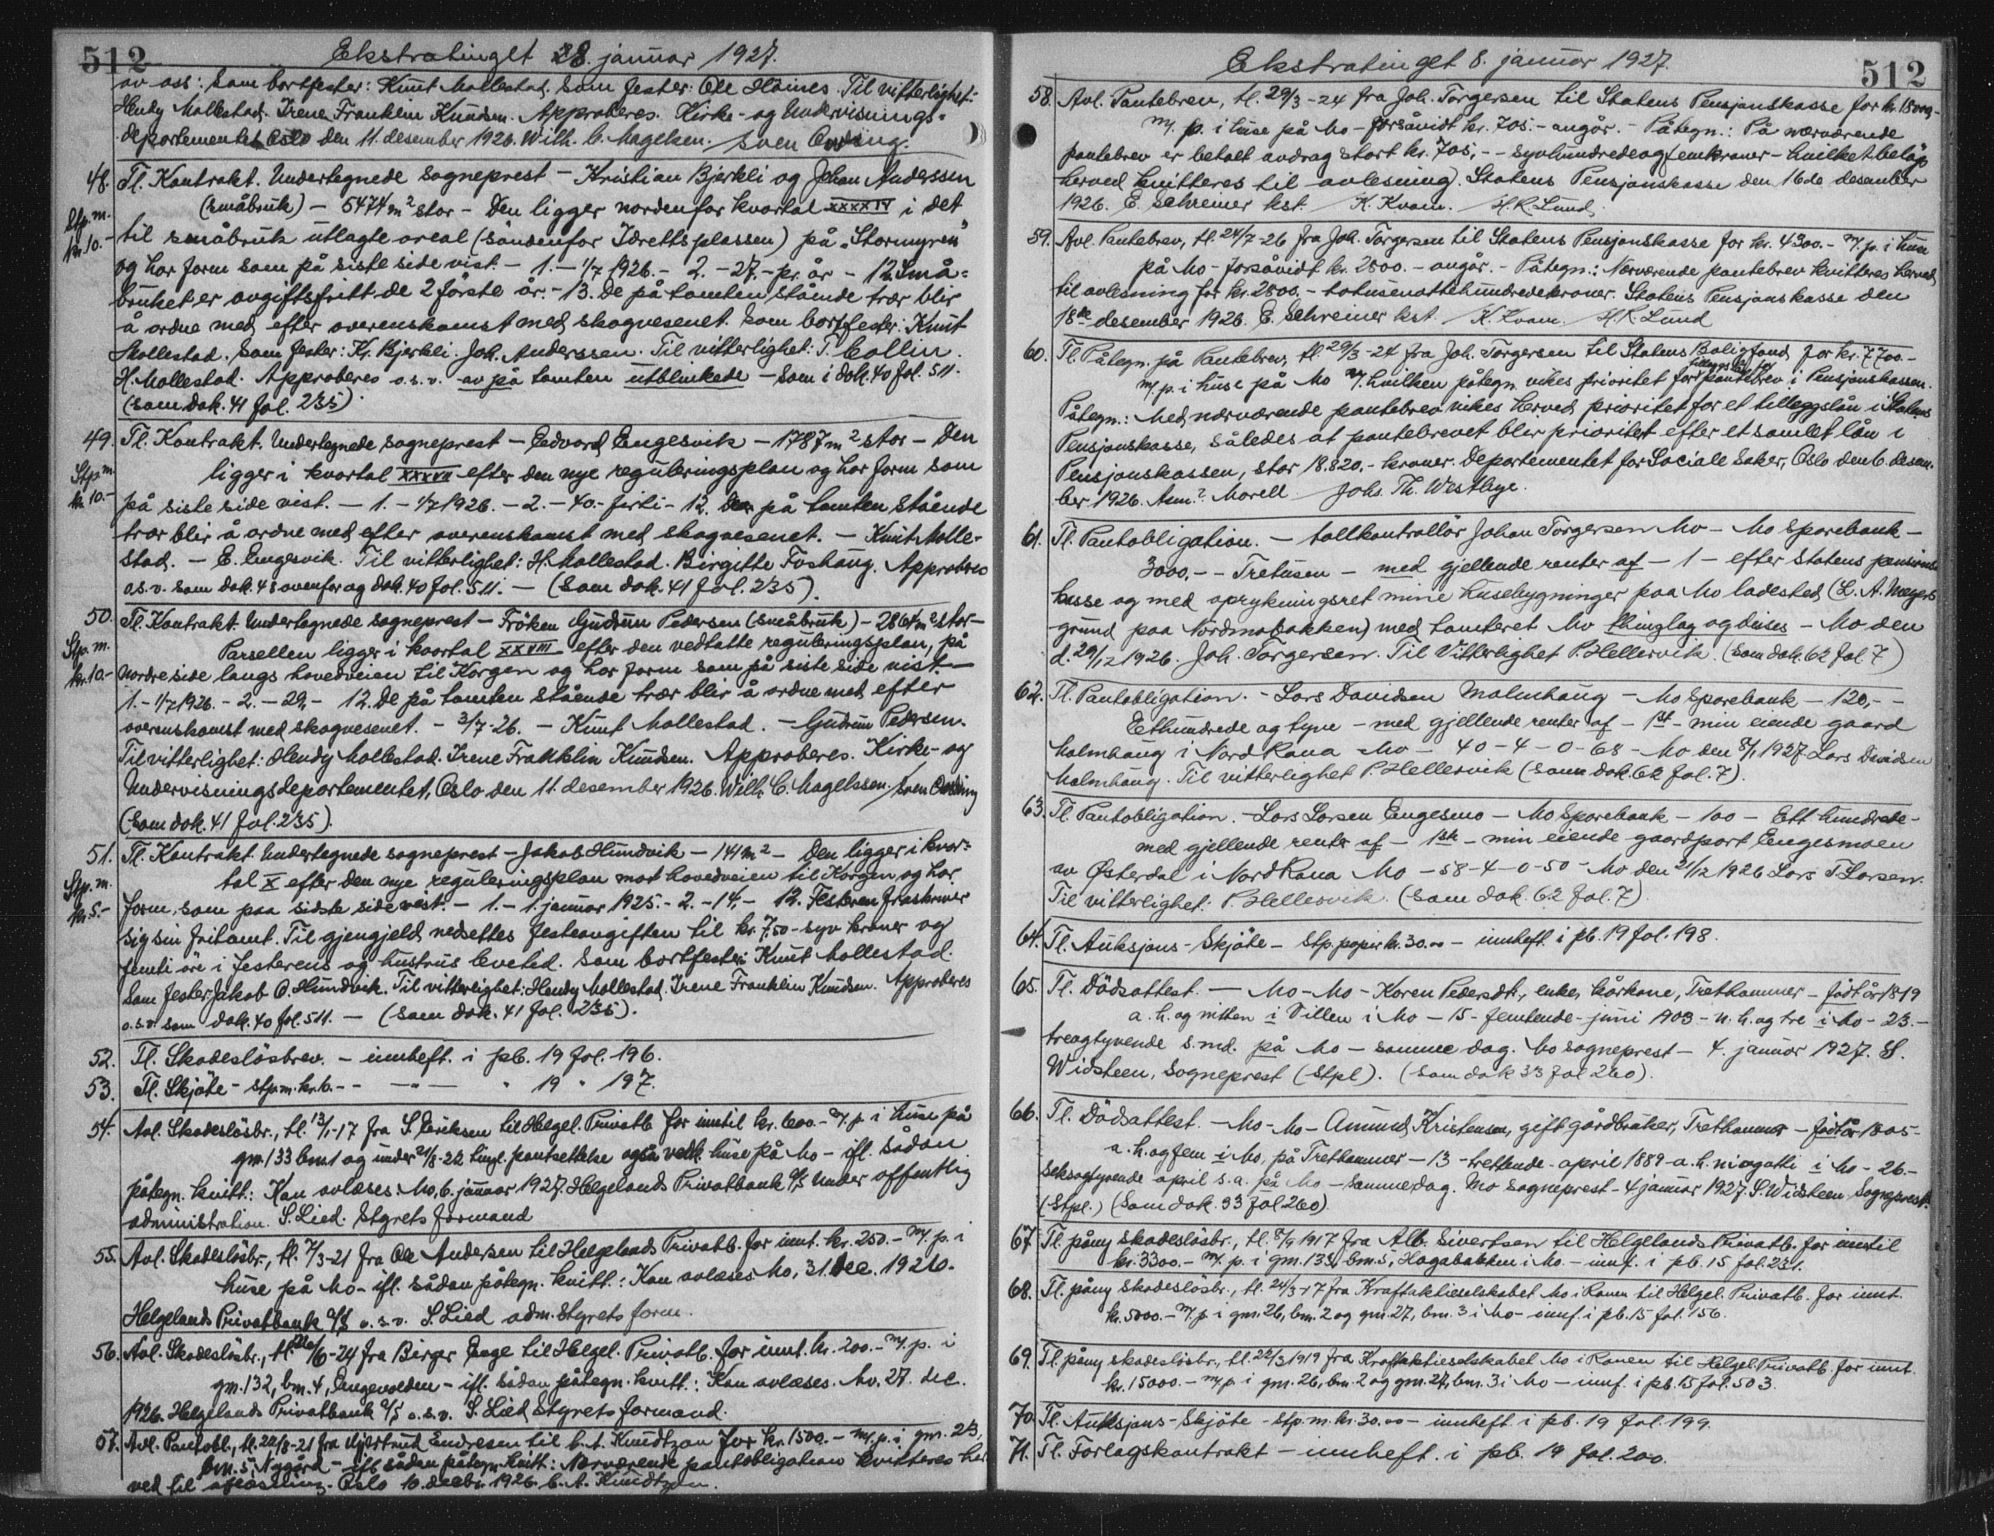 512
Ekstratinget 28. januar 1927.
av oss: Som bortfester: Knut Mollestad. Som fester: Ole Hoines. Til vitterlighet:
Hendy Mollestad. Irene Franklin Knudsen. Approberes. Kirke- og Undervisnings-
departementet, Oslo den 11. desember 1926. Wilh. C. Magelssen. / Sven Oveding.
48. Tl. Kontrakt. Undertegnede sogneprest – Kristian Bjerkli og Johan Anderssen
(småbruk) – 5474 m² stor – Den ligger nordenfor kvartal XXXXIV i det
Stp.m. kr. 10.- til småbruk utlagte areal (söndenfor Idrettsplassen) på „Stormyren"
og har form som på siste side vist. – 1. – 1/7 1926. – 2. – 27. – pr. år – 12. Små-
bruket er avgiftsfritt de 2 förste år. – 13. De på tomten stående trær blir
å ordne med efter overenskomst med skogvesenet. Som bortfester: Knut
Mollestad. Som fester: Kr. Bjerkli. Joh. Anderssen. Til vitterlighet: T. Collin.
H. Mollestad. Approberes o.s.v. av på tomten utblinkede – som i dok. 40 fol. 511.
(som dok. 41 fol. 235).
49. Tl. Kontrakt. Undertegnede sogneprest – Edvard Engesvik – 1787 m² stor – Den
ligger i kvartal XXXVII efter den nye reguleringsplan og har form som
Stp.m. kr. 10.- på siste side vist. – 1. – 1/7 1926. – 2. – 40. – firti – 12. De på tomten stående
trær blir å ordne med efter overenskomst med skogvesenet. – Knut Molle-
stad. – E. Engesvik. Til vitterlighet: H. Mollestad. Birgitte Foshaug. Approberes
o.s.v. som dok. 48 ovenfor og dok. 40 fol. 511. – (som dok. 41 fol. 235).
50. Tl. Kontrakt. Undertegnede sogneprest – Fröken Gudrun Pedersen (småbruk) – 2864 m² stor –
Stp.m. kr. 10.- Parsellen ligger i kvartal XXVIII efter den vedtatte reguleringsplan, på
nordre side langs hovedveien til Korgen og har form som på siste side vist. –
1. – 1/7 1926. – 2. – 29. – 12. De på tomten stående trær blir å ordne med efter
overenskomst med skogvesenet. – 3/7-26. – Knut Mollestad. – Gudrun Pedersen.
Til vitterlighet: Hendy Mollestad. Irene Franklin Knudsen. Approberes. Kirke- og
Undervisningsdepartementet, Oslo den 11. desember 1926. Wilh. C. Magelssen. / Sven Oveding
(som dok. 41 fol. 235).
51. Tl. Kontrakt. Undertegnede sogneprest – Jakob Hundvik – 141 m² – Den ligger i kvar-
tal X efter den nye reguleringsplan mot hovedveien til Korgen og har
Stp.m. kr. 5.- form som paa sidste side vest. – 1. – 1. januar 1925. – 2. – 14. – 12. Festeren fraskriver
sig sin fritomt. Til gjengjeld nedsettes festeavgiften til kr. 7.50 – syv kroner og
femti öre i festerens og hustrus levetid. Som bortfester: Knut Mollestad.
Som fester: Jakob O. Hundvik. Til vitterlighet: Hendy Mollestad. Irene Franklin Knudsen. Approberes
o.s.v. som dok. 40 fol. 511. – (som dok. 41 fol. 235).
52. Tl. Skadeslösbrev. – innheft. i pb. 19 fol. 196.
53. Tl. Skjöte – stp.m. kr. 6. – – –"– " 19 " 197.
54. Avl. Skadeslösbr., tl. 13/1-17 fra S. Eriksen til Helgel. Privatb. for inntil kr. 600.- m/ p. i huse på
gnr. 133 bnr. 1 og under 21/8-22 tingl. pantsettelse også vedk. huse på Mo – ifl. sådan
påtegn. kvitt.: Kan avlæses Mo, 6. januar 1927. Helgelands Privatbank A/S under offentlig
administration. S. Lied. Styrets formand
55. Avl. Skadeslösbr., tl. 7/3-21 fra Ole Andersen til Helgelands Privatb. for innt. kr. 250.- m/ p. i
huse på Mo – ifl. sådan påtegn. kvitt.: Kan avlæses Mo, 31. dec. 1926.
Helgelands Privatbank A/S o.s.v. S. Lied adm. styrets form.
56. Avl. Skadeslösbr., tl. 26/6-24 fra Birger Enge til Helgel. Privatb. for innt. kr. 200.- m/ p. i
gnr. 132, bnr. 4, Engevolden – ifl. sådan påtegn. kvitt.: Kan avlæses. Mo. 27. dec.
1926. Helgelands Privatbank A/S o.s.v. S. Lied Styrets formand.
57. Avl. Pantobl., tl. 22/8-21 fra Hjertrud Endresen til C. A. Knudtzon for kr. 1500.- m/ p. i gnr. 23,
bnr. 5, Nygård – ifl. sådan påtegn. kvitt: Nærværende pantobligation kvitteres her-
ved til avlæsning. Oslo 10. decbr. 1926. C. A. Knudtzon.
512
Ekstratinget 8. januar 1927.
58. Avl. Pantebrev, tl. 29/3-24 fra Joh. Torgersen til Statens Pensjonskasse for kr. 18000,-
m/ p. i huse på Mo – forsåvidt kr. 705. – angår. – Påtegn.: På nærværende
pantebrev er betalt avdrag stort kr. 705,- – syvhundredeogfemkroner – hvilket belöp
herved kvitteres til avlesning. Statens Pensjonskasse den 16de desember
1926. E. Schreiner kst. / K. Kvam. / H. R. Lund.
59. Avl. Pantebrev, tl. 24/7-26 fra Joh. Torgersen til Statens Pensjonskasse for kr. 4300.- m/ p. i huse
på Mo – forsåvidt kr. 2800. – angår. – Påtegn.: Nærværende pantebrev kvitteres herved
til avlesning for kr. 2800.- – totusenottehundredekroner. Statens Pensjonskasse den
18de desember 1926. E. Schreiner kst. / K. Kvam. / H. R. Lund
60. Tl. Påtegn. på Pantebrev, tl. 29/3-24 fra Joh. Torgersen til Statens Boligfond for kr. 7700.-
m/ p. i huse på Mo m/ hvilken påtegn. vikes prioritet for pantebrev i Pensjonskassen.
Påtegn.: Med nærværende pantebrev vikes herved prioritet for et tilleggslån i Statens
Pensjonskasse, således at pantebrevet blir prioritet efter et samlet lån i
Pensjonskassen, stor 18.820.- kroner. Departementet for Sociale Saker, Oslo den 6. desem-
ber 1926. Morell / Johs. Th. Westbye.
61. Tl. Pantobligation. – tollkontrollör Johan Torgersen Mo – Mo Sparebank –
3000,- – Tretusen – med gjellende renter af – 1 – efter Statens pensions-
kasse og med oprykningsret mine husebygninger paa Mo ladested (L. A. Meyers
grund paa Nordmobakken) med tomteret Mo thinglag og duises – Mo den
d. 29/12 1926. Joh. Torgersen. Til Vitterlighet P. Hellesvik. (som dok. 62 fol. 7)
62. Tl. Pantobligation. – Lars Davidsen Malmhaug – Mo Sparebank – 120,- –
Ethundrede og tyve – med gjellende renter af – 1st – min eiende gaard
Malmhaug i Nord Rana Mo – 40-4-0-68 – Mo den 8/1 1927 Lars Davidsen
Malmhaug. Til vitterlighet P. Hellesvik (som dok. 62 fol. 7).
63. Tl. Pantobligation. – Lars Larsen Engesmo – Mo Sparebank – 100 – Ett hundrede –
med gjellende renter af – 1ste – min eiende gaardpart Engesmoen
av Østerdal i Nord Rana Mo – 58-4-0-50 – Mo den 21/12 1926 Lars T Larsen.
Til vitterlighet: P. Hellesvik (som dok. 62 fol. 7).
64. Tl. Auksjons-Skjöte – Stp. papir kr. 30.00 – innheft. i pb. 19 fol. 198.
65. Tl. Dödsattest. – Mo – Mo – Karen Pedersdtr., enke, kårkone, Trethammer – född år 1819
a. h. og nitten i Villen i Mo – 15 – femtende – juni 1903 – n. h. og tre i Mo – 23. –
treogtyvende s. md. på Mo – samme dag. Mo sogneprest – 4. januar 1927. S.
Widsteen, sogneprest (Stpl). (som dok 33 fol 260).
66. Tl. Dödsattest. – Mo – Mo – Amund Kristensen, gift gårdbruker, Trethammer – född år 1805 –
a. h. og fem i Mo, på Trethammer – 13 – trettende – april 1889 – a. h. niogotti i Mo – 26 –
seksogtyvende april s. a. på Mo – samme dag. Mo sogneprest – 4 januar 1927. S. Widsteen, Sogneprest.
(Stpl.) (som dok. 33 fol 260)
67. Tl. påny skadeslösbr., tl. 8/9 1917 fra Alb. Sivertsen til Helgelands Privatb. for inntil
kr. 3300.- m/ p. i gnr. 133, bnr. 5, Hagabakken i Mo. – innf. i pb. 15 fol. 231.
68. Tl. påny skadeslösbr., tl. 24/3-17 fra Kraftaktieselskabet Mo i Ranen til Helgel. Privatb. for innt.
kr. 5000.- m/ p. i gnr. 26, bnr. 2 og gnr. 27, bnr. 3 i Mo – innf. i pb. 15 fol. 156.
69. Tl. påny skadeslösbr., tl. 22/3 1919 fra Kraftaktieselskabet Mo i Ranen til Helgel. Privatb. for innt.
kr. 15000.- m/ p. i gnr. 26, bnr. 2 og gnr. 27, bnr. 3 i Mo – innf. i pb. 15 fol. 503.
70. Tl. Auksjons-Skjöte – stp.m. kr. 30.00 – innheft i pb. 19 fol. 199.
71. Tl. Forlagskontrakt – innheft. i pb. 19 fol. 200.